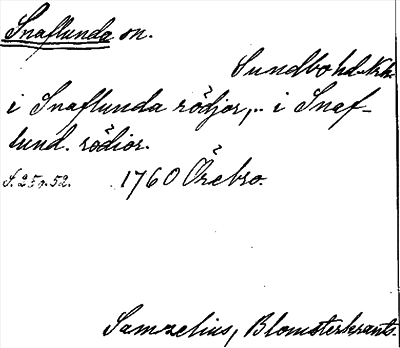 Snaflunda sn.
Sundbo hd. Nke.
i Snaflunda rödjor,.. i Snaf-
lund. rödior.
S. 25 o. 52. 1760 Örebro.
Samzelius, Blomsterkrants.